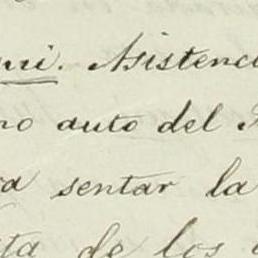 uri. Asistenci
no auto del
ra sentar la
ta de los